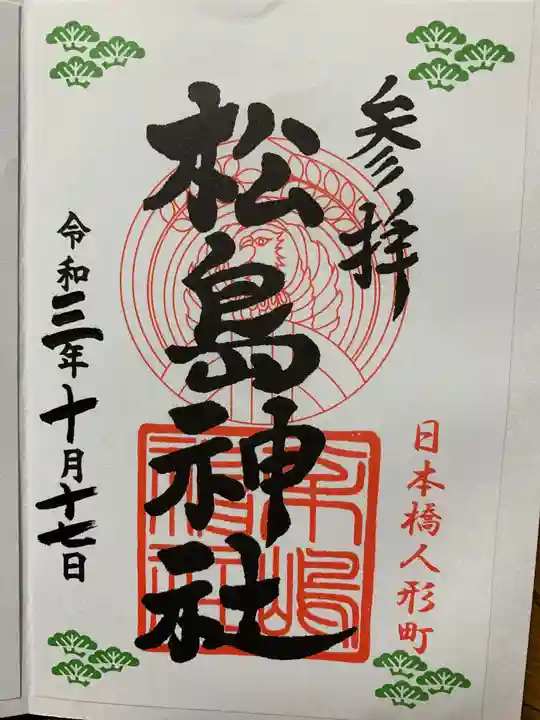 参拝
日本橋人形町
松島神社
令和三年十月十七日